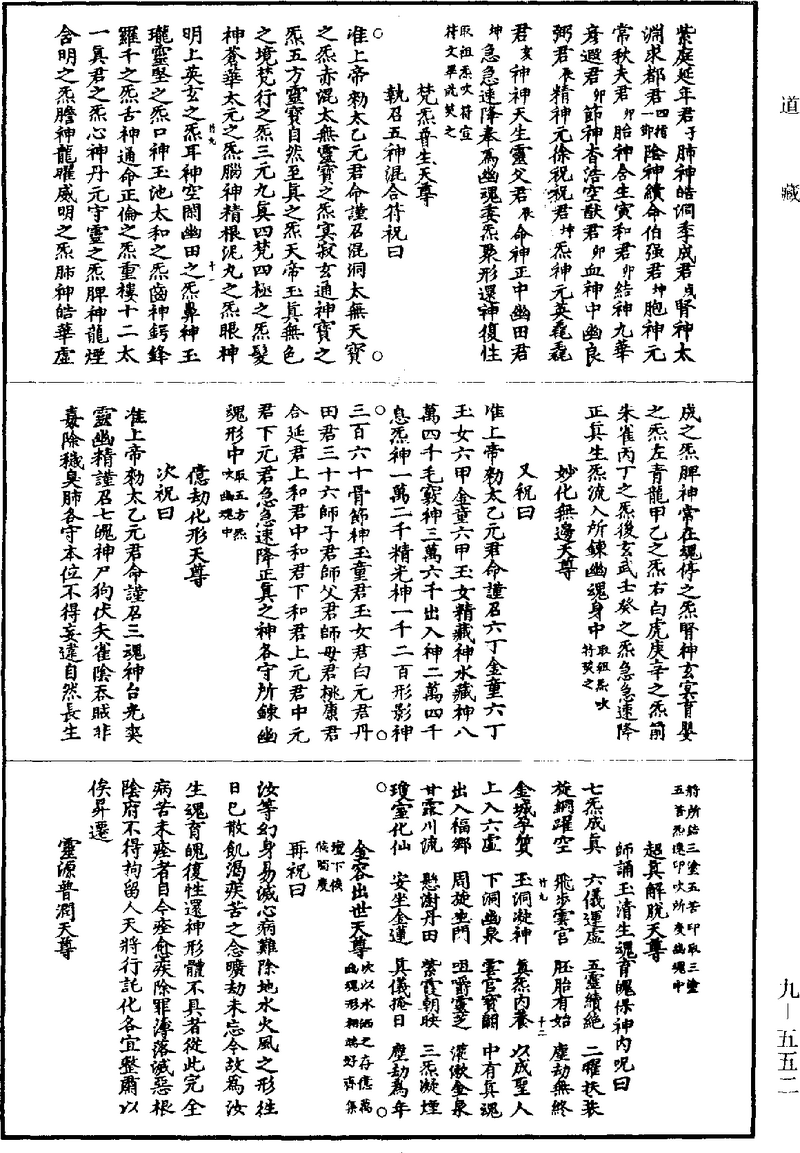 道藏
紫庭延年君子肺神皓洞李成君戌腎神太
淵求都君四指一節陰神續命伯强君坤胞神元
常秋夫君卯胎神合生寅和君卯結神九華
彥遐君卯節神杳浩空猷君卯血神中幽良
弼君辰精神元徐祝祝君坤炁神元英毳毳
君亥神神天生靈父君辰命神正中幽田君
坤急急速降奉爲幽魂委炁聚形還神復性
取祖炁吹符宣
符文畢流熒之
梵炁尊生天尊
執召五神混合符祝曰
准上帝勑太乙元君命謹召混洞太無天寶
之炁赤混太無靈寶之炁寞寂玄通神寶之
炁五方靈寶自然至真之炁天帝玉真無色
之境梵行之炁三元九真四梵四極之炁髮
神蒼華太元之炁腦神精根泥丸之炁眼神
明上英玄之炁耳神空閑幽田之炁鼻神玉
瓏靈堅之炁口神玉池太和之炁齒神鍔鋒
羅千之炁舌神通命正倫之炁重樓十二太
一真君之炁心神丹元守靈之炁脾神龍煙
含明之炁膽神龍曜威明之炁肺神皓華虛
成之炁脾神常在魂停之炁腎神玄寞育嬰
之炁左青龍甲乙之炁右白虎庚辛之炁前
朱雀丙丁之炁後玄武壬癸之炁急急速降
正真生炁流入所鍊幽魂身中取祖炁吹符熒之
妙化無邊天尊
又祝曰
准上帝勑太乙元君命謹召六丁金童六丁
玉女六甲金童六甲玉女精藏神水藏神八
萬四千毛竅神三萬六千出入神二萬四千
息炁神一萬二千精光神一千二百形影神
三百六十骨節神玉童君玉女君白元君丹
田君三十六師子君師父君師母君桃康君
合延君上和君中和君下和君上元君中元
君下元君急急速降正真之神各守所鍊幽
魂形中取五方炁吹幽魂中
億劫化形天尊
次祝曰
准上帝勑太乙元君命謹召三魂神台光爽
靈幽精謹召七魄神尸狗伏矢雀陰吞賊非
毒除穢臭肺各守本位不得妄違自然長生
符所結三塗五苦印取三塗
五苦炁連印吹所度幽魂中
超真解脫天尊
師誦玉清生魂育魄保神內呪曰
七炁成真 六儀運虛 五靈續絕 二曜扶裝
旋綱躍空 飛步雲宮 胚胎有始 塵劫無終
金城孕質 玉洞凝神 真炁內養 以成聖人
上入六虛 下洞幽泉 雲官寶關 中有真魂
出入福鄉 周旋坐門 咀嚼靈芝 潔漱金泉
甘露川流 懸澍丹田 紫霞朝映 三炁凝煙
瓊室化仙 安坐金蓮 真儀掩日 塵劫爲年
金容出世天尊吹以水洒之存億萬幽魂形相端好齊集
壇下候
候簡度
再祝曰
汝等幻身易滅心病難除地水火風之形往
日已散飢渴疾苦之念曠劫未忘今故爲汝
生魂育魄復性還神形體不具者從此完全
病苦未痊者自今痊愈疾除罪薄落滅惡根
陰府不得拘留人天將行託化各宜整肅以
俟昇遷
靈源普潤天尊
九—五五二